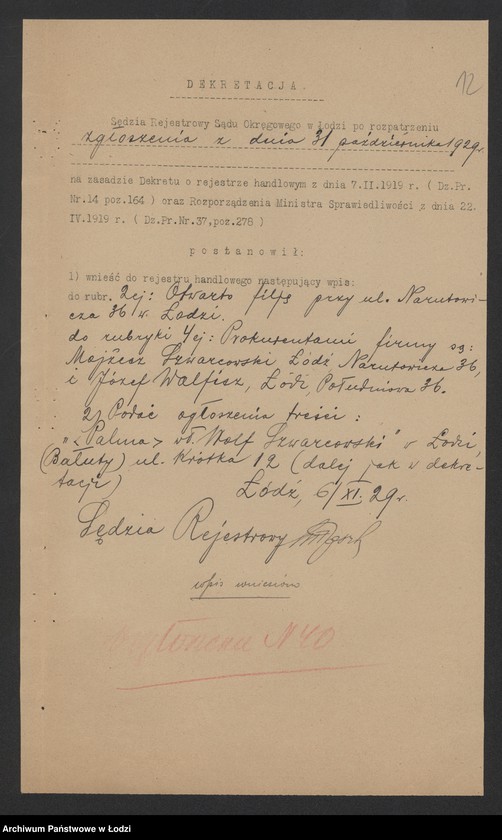 12
DEKRETACJA.
Sędzia Rejestrowy Sądu Okręgowego w Łodzi po rozpatrzeniu
zgłoszenia z dnia 31 października 1929r.
na zasadzie Dekretu o rejestrze handlowym z dnia 7.II.1919 r. ( Dz.Pr.
Nr.14 poz.164 ) oraz Rozporządzenia Ministra Sprawiedliwości z dnia 22.
IV.1919 r. ( Dz.Pr.Nr.37,poz.278 )
postanowił:
1) wnieść do rejestru handlowego następujący wpis:
do rubr. 2ej: Otwarto filję przy ul. Narutowi-
cza 36 w Łodzi.
do rubryki 4ej: Prokurentami firmy są:
Mojżesz Szwarcowski Łódź Narutowicza 36,
i Józef Walfisz, Łódź, Południowa 36.
2) Podać ogłoszenia treści:
"<Palma> wł. Wolf Szwarcowski" w Łodzi,
(Bałuty) ul. Krótka 12 (dalej jak w dekre-
tacji)
Łódź, 6/XI. 29r.
Sędzia Rejestrowy
wpis wniesiono
N 40
Archiwum Państwowe w Łodzi